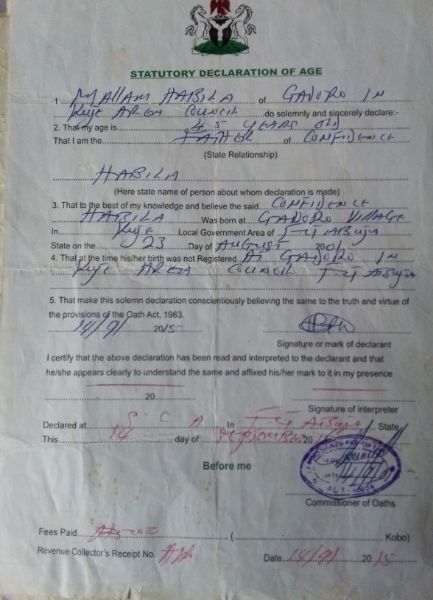 STATUTORY DECLARATION OF AGE
1 MALLAM HABILA of GADORO IN
KUJE AREA COUNCIL do solemnly and sincerely declare:-
2. That my age is 45 YEARS OLD
That I am the FATHER of CONFIDENCE
(State Relationship)
HABILA
(Here state name of person about whom declaration is made)
3. That to the best of my knowledge and believe the said CONFIDENCE
HABILA Was born at GADORO VILLAGE
In KUJE Local Government Area of FCT ABUJA
State on the 23 Day of AUGUST 2001
4. That at the time his/her birth was not Registered At GADORO IN
KUJE AREA COUNCIL FCT ABUJA
5. That make this solemn declaration conscientiously believing the same to the truth and virtue of
the provisions of the Oath Act, 1963.
14/9/ 2015
Signature or mark of declarant
I certify that the above declaration has been read and interpreted to the declarant and that
he/she appears clearly to understand the same and affixed his/her mark to it in my presence
20
Signature of interpreter
Declared at S. C A In FCT ABUJA State
This 14 day of SEPTEMBER 20
Before me
Commissioner of Oaths
Fees Paid ( Kobo)
Revenue Collector's Receipt No. Date 14/9/ 2015